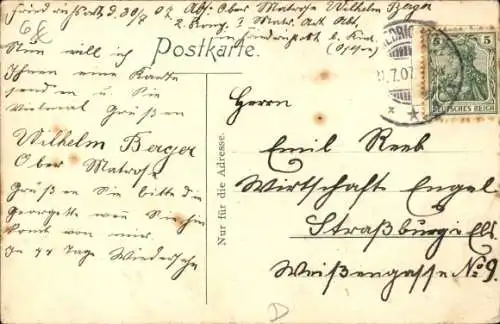 Friedrichsort d. 30/7 07 Abs. Ober Matrose Wilhelm Berger
2. Komp. 3 Matr. Art. Abt.
in Friedrichsort b. Kiel
(Ostsee)
68
Postkarte.
Nun will ich
Ihnen eine Karte
senden u. Sie
vielmal Grüßen
Wilhelm Berger
Ober Matrose
Grüßen Sie bitte die
Georgette wen Sie
von mir.
In 44 Tage Wiedersehn
Nur für die Adresse.
7.07
5 5
DEUTSCHES REICH
Herrn
Emil Reeb
Wirtschaft Engel
Straßburg i Els.
Weißengasse No 9.
D